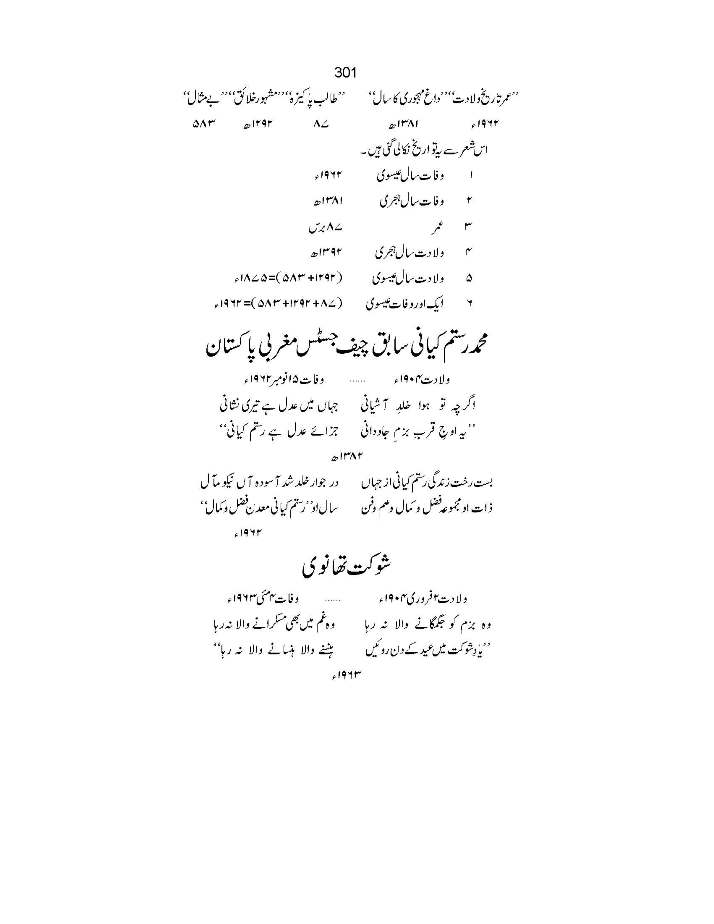 301
”عمر تاریخ ولادت“ ”داغ مہجوری کا سال“ ”طالب پاکیزہ“ ”مشہور خلائق“ ”بے مثال“
۱۹۶۲ء ۱۳۸۱ھ ۸۷ ۱۲۹۲ھ ۵۸۳
اس شعر سے یہ تواریخ نکالی گئی ہیں۔
۱ وفات سال عیسوی ۱۹۶۲ء
۲ وفات سال ہجری ۱۳۸۱ھ
۳ عمر ۸۷ برس
۴ ولادت سال ہجری ۱۲۹۲ھ
۵ ولادت سال عیسوی (۱۲۹۲+۵۸۳)=۱۸۷۵ء
۶ ایک اور وفات عیسوی (۸۷+۱۲۹۲+۵۸۳)=۱۹۶۲ء
محمد رستم کیانی سابق چیف جسٹس مغربی پاکستان
ولادت ۱۹۰۴ء ...... وفات ۱۵ نومبر ۱۹۶۲ء
اگرچہ تو ہوا خلد آشیانی جہاں میں عدل ہے تیری نشانی
”بہ اوج قرب بزم جاودانی جزائے عدل ہے رستم کیانی“
۱۳۸۲ھ
بست رخت زندگی رستم کیانی از جہاں در جوار خلد شد آسودہ آں نیکو مآل
ذات او مجموعہ فضل و کمال و علم و فن سال او ”رستم کیانی معدن فضل و کمال“
۱۹۶۲ء
شوکت تھانوی
ولادت ۲ فروری ۱۹۰۴ء ...... وفات ۴ مئی ۱۹۶۳ء
وہ بزم کو جگمگانے والا نہ رہا وہ غم میں بھی مسکرانے والا نہ رہا
”یادِ شوکت میں عید کے دن روئیں ہنسنے والا ہنسانے والا نہ رہا“
۱۹۶۳ء